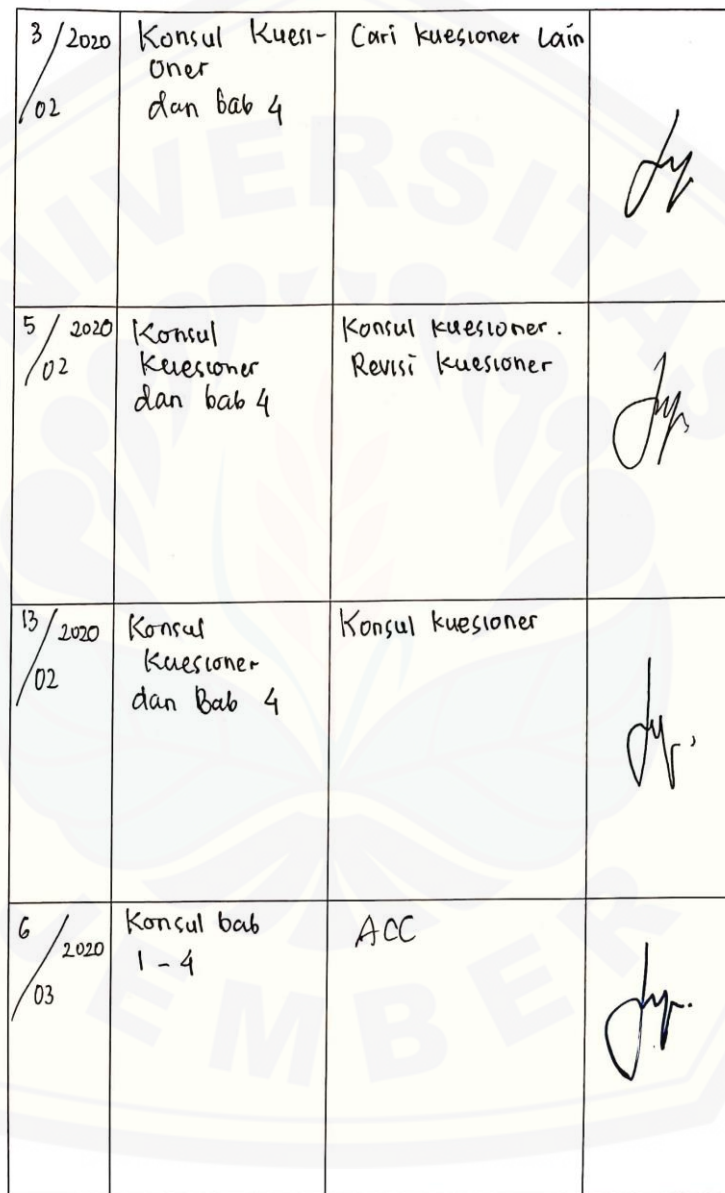 3/02 2020
Konsul Kuesi-
oner
dan bab 4
Cari kuesioner Lain
5/02 2020
Konsul
Kuesioner
dan bab 4
Konsul kuesioner.
Revisi kuesioner
13/02 2020
Konsul
Kuesioner
dan Bab 4
Konsul kuesioner
6/03 2020
Konsul bab
1 - 4
ACC
UNIVERSITAS
JEMBER